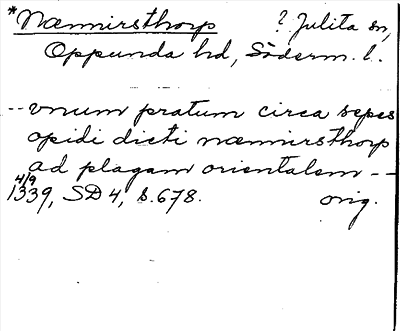 *Næmirsthorp ? Julita sn,
Oppunda hd, Söderm. l.
-- vnum pratum circa sepes
opidi dicti næmirsthorp
ad plagam orientalem --
4/9
1339, SD 4, s. 678. orig.